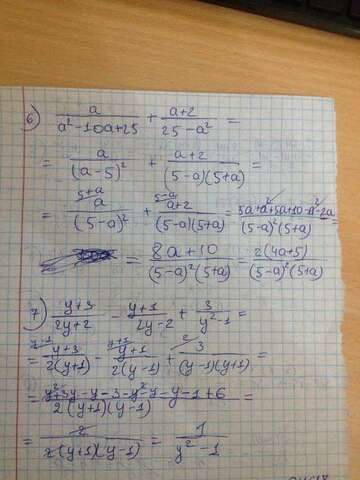 6) a/(a²-10a+25) + (a+2)/(25-a²) =
= a/(a-5)² + (a+2)/((5-a)(5+a)) =
= a^(5+a)/(5-a)² + (a+2)^(5-a)/((5-a)(5+a)) = (5a+a²+5a+10-a²-2a)/((5-a)²(5+a)) =
= (8a+10)/((5-a)²(5+a)) = 2(4a+5)/((5-a)²(5+a))
7) (y+3)/(2y+2) - (y+1)/(2y-2) + 3/(y²-1) =
= (y+3)^(y-1)/(2(y+1)) - (y+1)^(y+1)/(2(y-1)) + 3^2/((y-1)(y+1)) =
= (y²+3y-y-3-y²-y-y-1+6)/(2(y+1)(y-1)) =
= 2/(2(y+1)(y-1)) = 1/(y²-1)